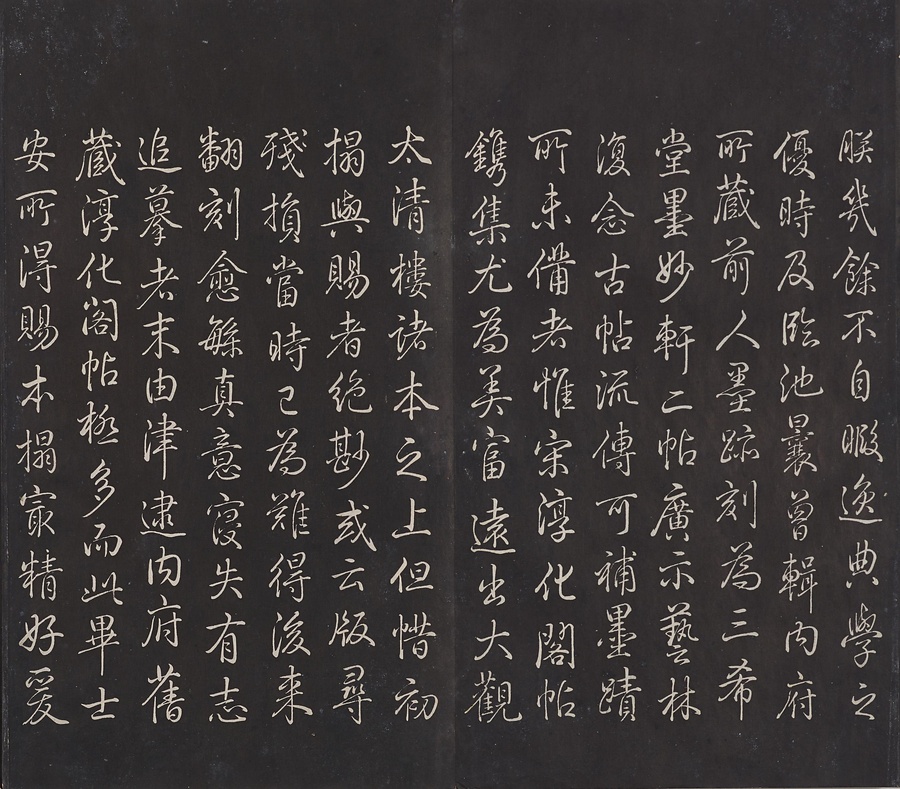 朕幾餘不自暇逸典學之
優時及臨池曩曾輯内府
所蔵前人墨跡刻為三希
堂墨妙軒二帖廣示藝林
復念古帖流傳可補墨蹟
所未備者惟宋淳化閣帖
鐫集尤為美富遠出大觀
太清樓諸本之上但惜初
搨與賜者絶尠或云版尋
殘損當時已為難得後来
翻刻愈緐真意寖失有志
追摹者末由津逮内府舊
蔵淳化閣帖極多而此畢士
安所得賜本搨㝡精好爰